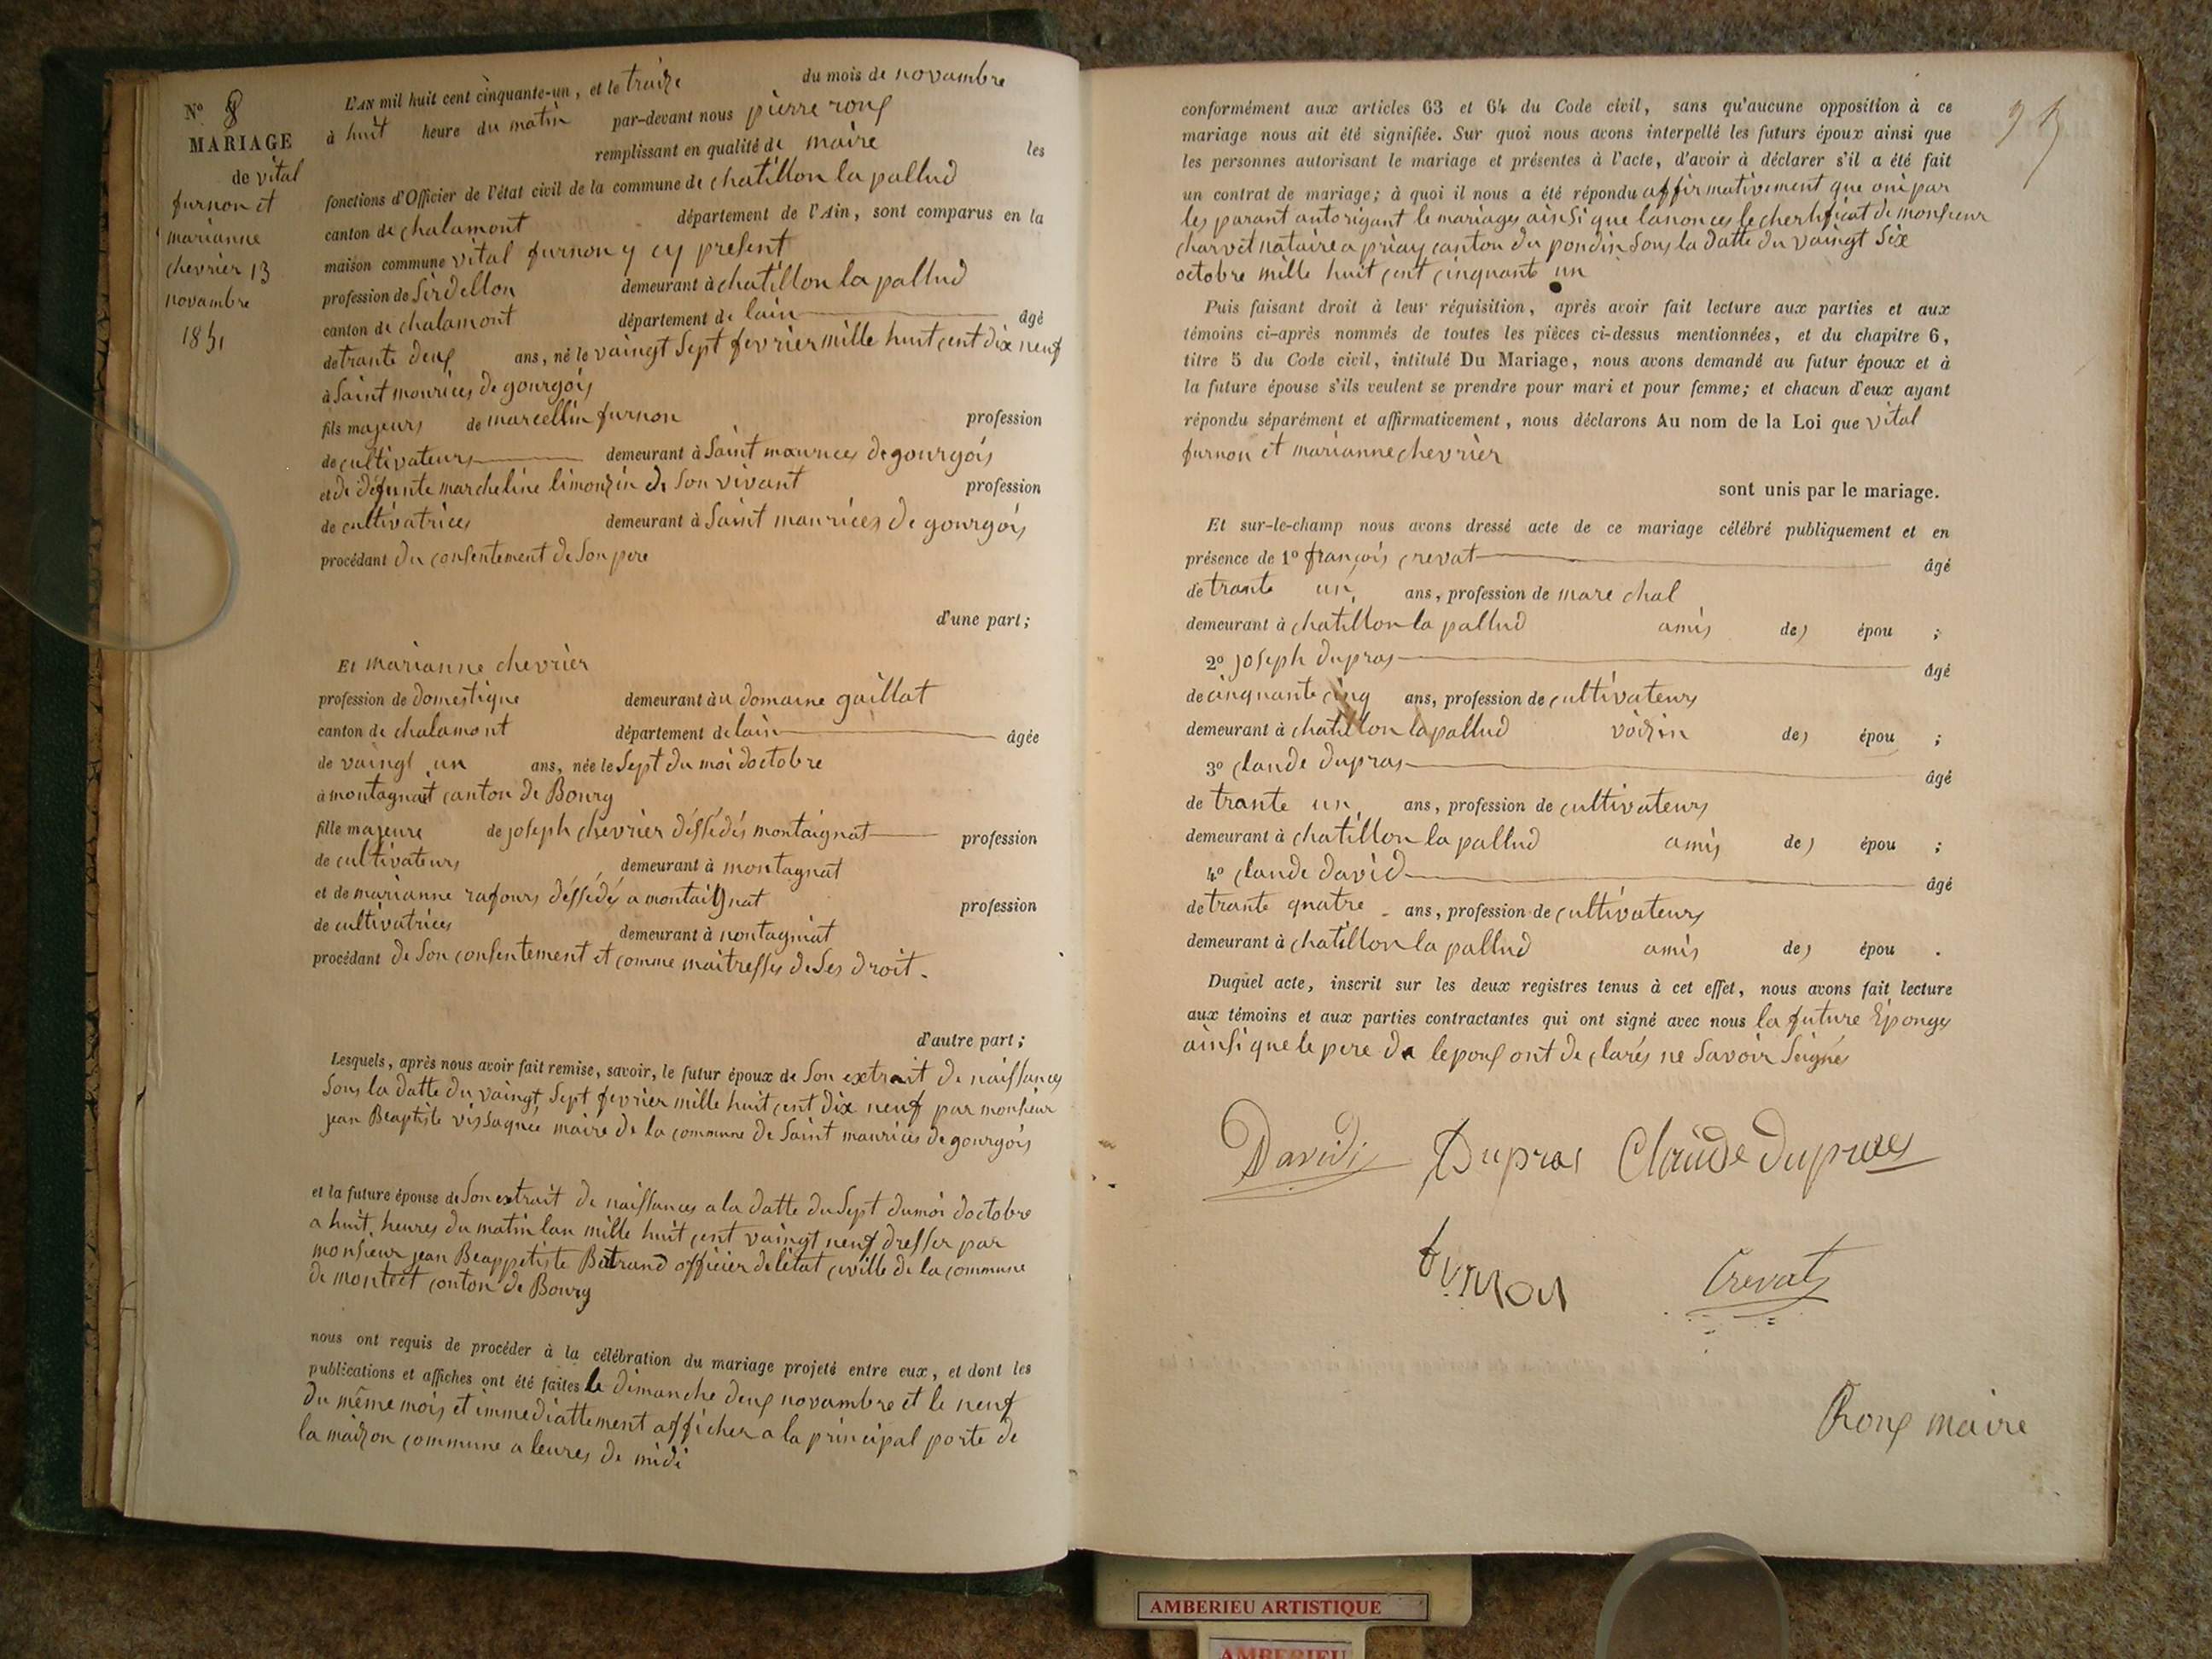 N° 8
MARIAGE
de vital
furnon et
marianne
chevrier 13
novambre
1851
L'AN mil huit cent cinquante-un, et le traize du mois de novambre
à huit heure du matin par-devant nous pierre roux
remplissant en qualité de maire les
fonctions d'Officier de l'état civil de la commune de chatillon la pallud
canton de chalamont département de l'Ain, sont comparus en la
maison commune vital furnon y cy present
profession de demeurant à chatillon la pallud
canton de chalamont département de lain âgé
de trante deux ans, né le vaingt sept fevrier mille huit cent dix neuf
à saint maurices de gourgois
fils majeurs de marcellin furnon profession
de cultivateurs demeurant à saint maurices de gourgois
et de défunte marcheline limouzin de son vivant profession
de cultivatrices demeurant à saint maurices de gourgois
procédant du consentement de son pere
d'une part;
Et marianne chevrier
profession de domestique demeurant àu domaine gaillat
canton de chalamont département de lain âgée
de vaingt un ans, née le sept du moi doctobre
à montagnat canton de Bourg
fille majeure de joseph chevrier déssédés montaignat profession
de cultivateurs demeurant à montagnat
et de marianne rafours déssédés a montaignat profession
de cultivatrices demeurant à montagniat
procédant de son consentement et comme maitresses de ses droit.
d'autre part;
Lesquels, après nous avoir fait remise, savoir, le futur époux de son extrait de naissances
sous la datte du vaingt sept fevrier mille huit cent dix neuf par monsieur
jean Beaptiste maire de la commune de saint maurices de gourgois
et la future épouse de son extrait de naissances a la datte du sept du moi doctobre
a huit heures du matin lan mille huit cent vaingt neuf dresser par
monsieur jean Beapptiste officier de létat cville de la commune
de montect conton de Bourg
nous ont requis de procéder à la célébration du mariage projeté entre eux, et dont les
publications et affiches ont été faites le dimanche deux novambre et le neuf
du même mois et immediattement afficher a la principal porte de
la maizon commune a leures de midi
conformément aux articles 63 et 64 du Code civil, sans qu'aucune opposition à ce
mariage nous ait été signifiée. Sur quoi nous avons interpellé les futurs époux ainsi que
les personnes autorisant le mariage et présentes à l'acte, d'avoir à déclarer s'il a été fait
un contrat de mariage; à quoi il nous a été répondu affirmativement que oui par
les parant autorigant le mariages ainsi que lanonces le chertificat de monsieur
charvet notaire a priay canton du pondin sous la datte du vaingt six
octobre mille huit cent cinquante un
Puis faisant droit à leur réquisition, après avoir fait lecture aux parties et aux
témoins ci-après nommés de toutes les pièces ci-dessus mentionnées, et du chapitre 6,
titre 5 du Code civil, intitulé Du Mariage, nous avons demandé au futur époux et à
la future épouse s'ils veulent se prendre pour mari et pour femme; et chacun d'eux ayant
répondu séparément et affirmativement, nous déclarons Au nom de la Loi que vital
furnon et marianne chevrier
sont unis par le mariage.
Et sur-le-champ nous avons dressé acte de ce mariage célébré publiquement et en
présence de 1° françois crevat âgé
de trante un ans, profession de mare chal
demeurant à chatillon la pallud amis des épou ;
2° joseph dupras âgé
de cinquante cinq ans, profession de cultivateurs
demeurant à chatillon la pallud voizin des épou ;
3° claude dupras âgé
de trante un ans, profession de cultivateurs
demeurant à chatillon la pallud amis des épou ;
4° claude david âgé
de trante quatre ans, profession de cultivateurs
demeurant à chatillon la pallud amis des épou .
Duquel acte, inscrit sur les deux registres tenus à cet effet, nous avons fait lecture
aux témoins et aux parties contractantes qui ont signé avec nous la future Epouges
ainsi que le pere de lepoux ont de clarés ne savoir seignés
David Dupras Claude dupras
furnon Crevat
Roux maire
AMBERIEU ARTISTIQUE
AMBERIEU